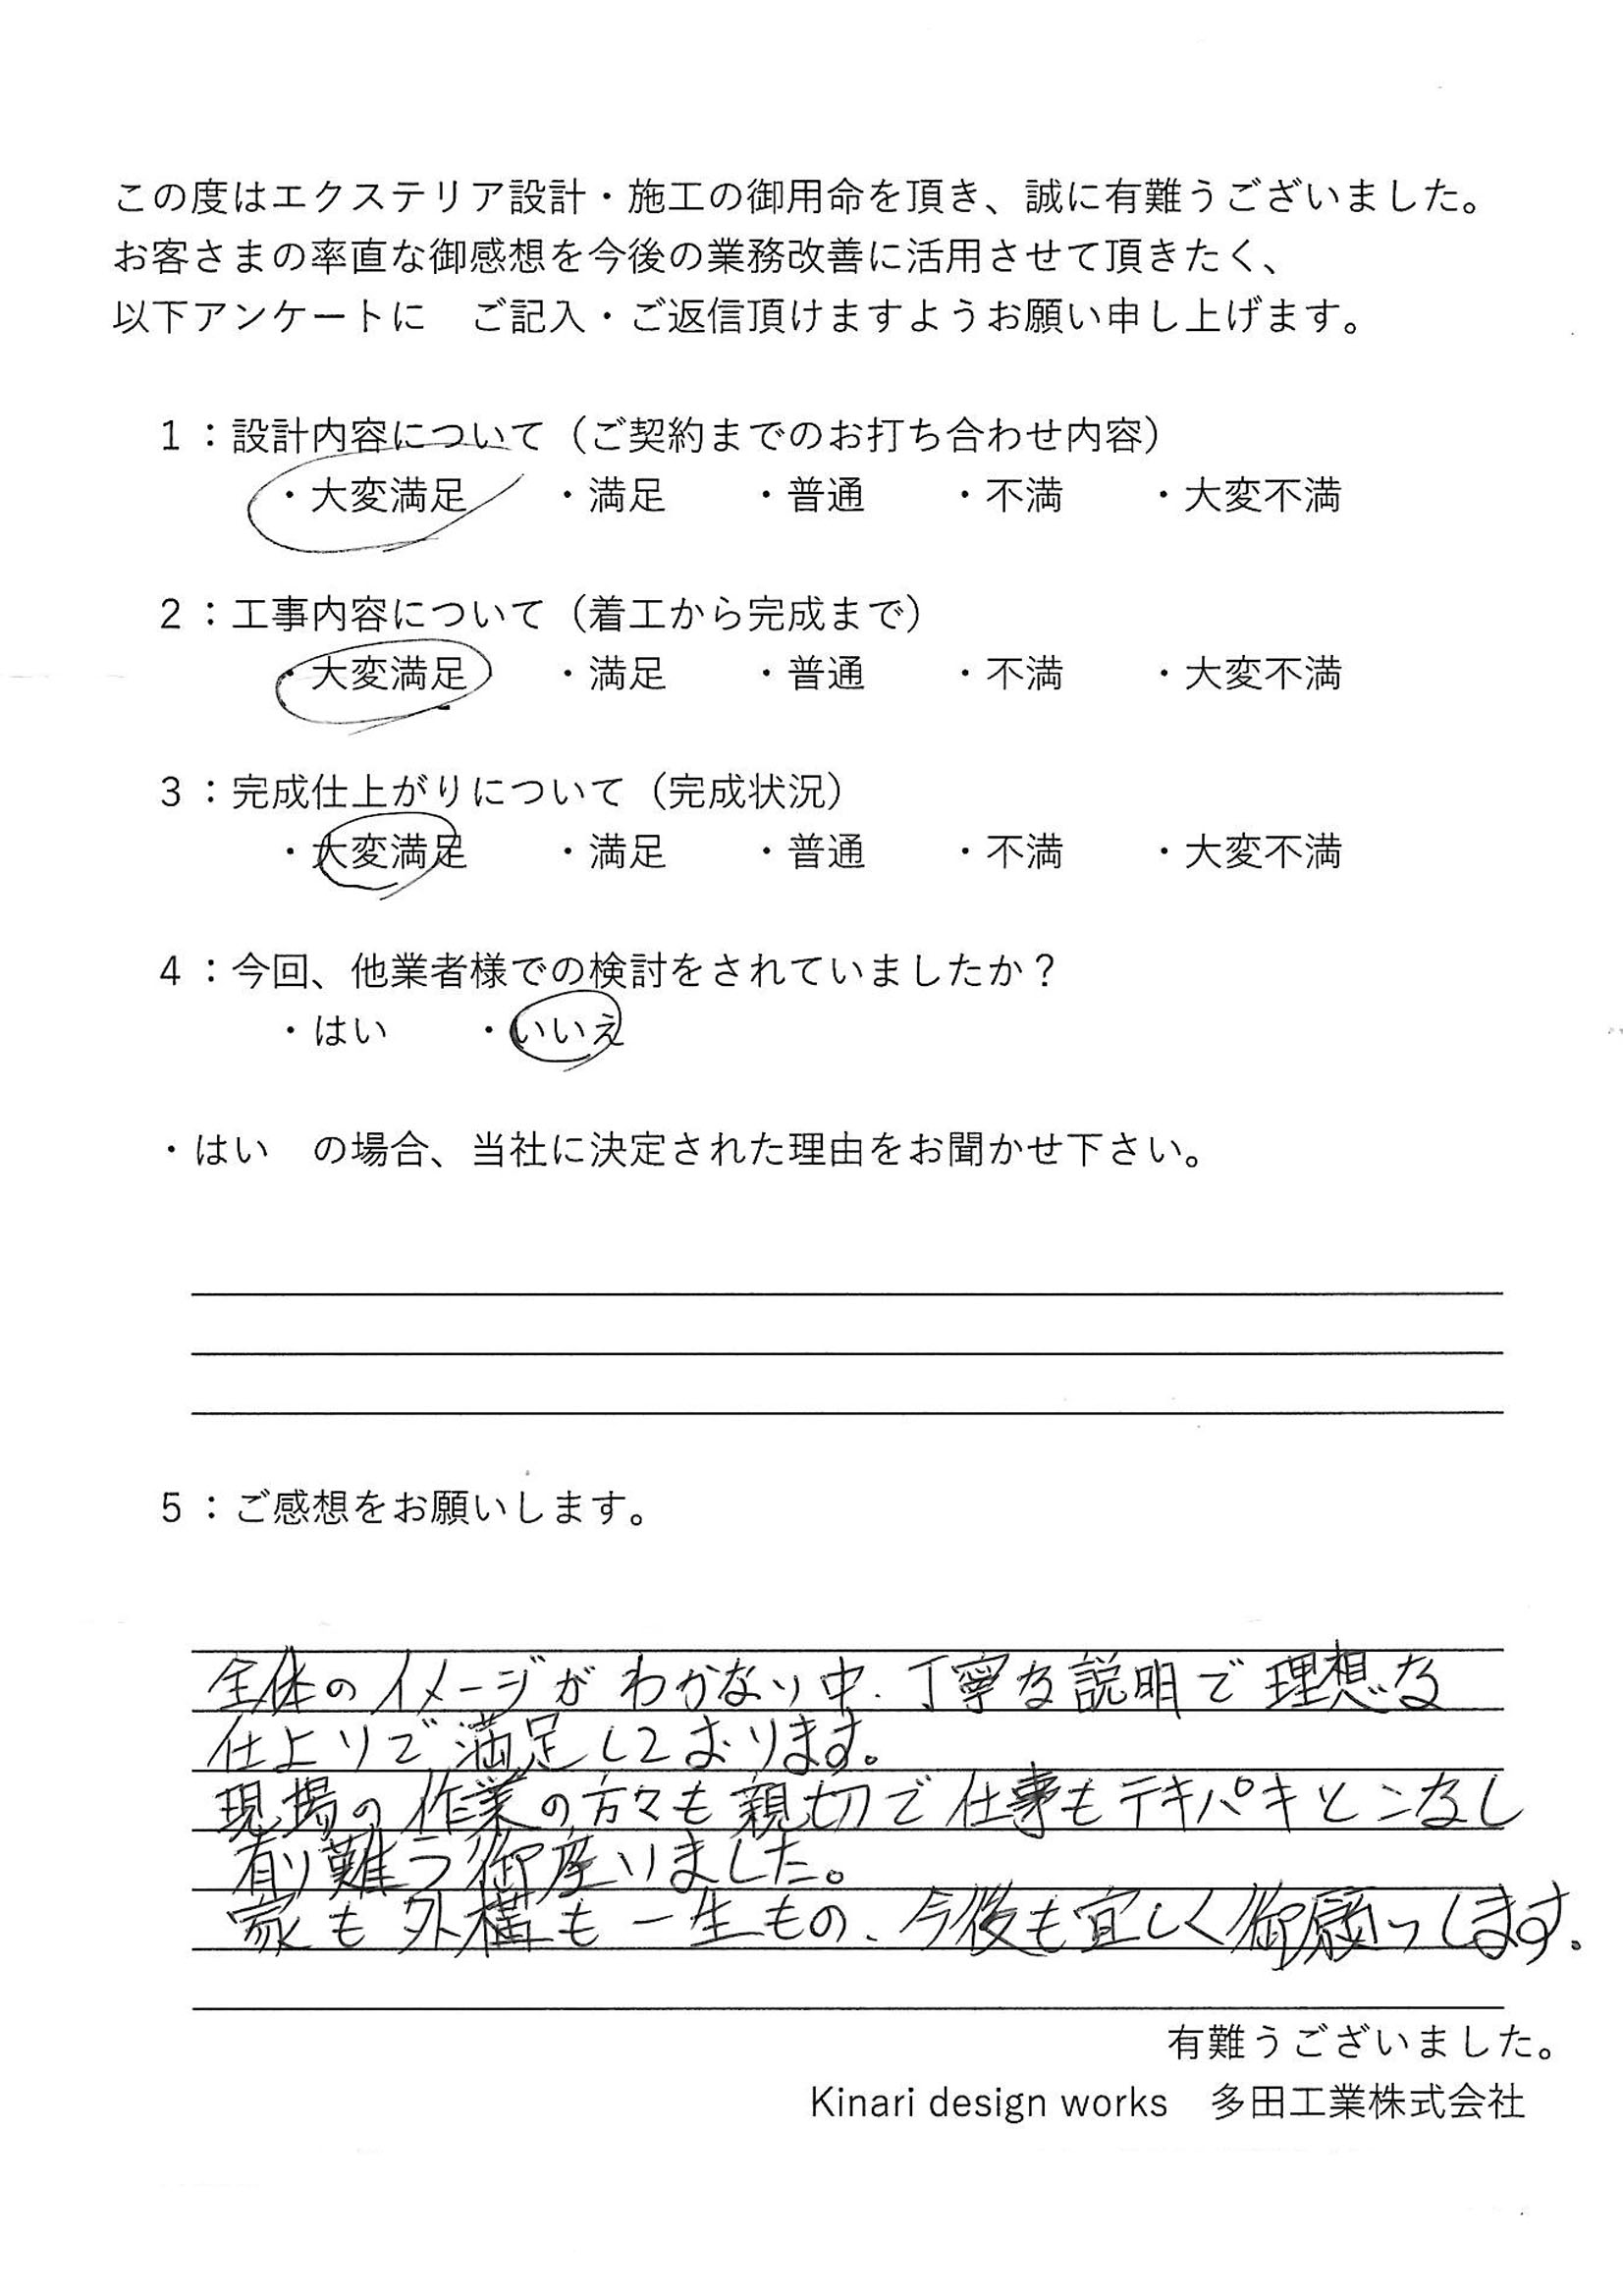 この度はエクステリア設計・施工の御用命を頂き、誠に有難うございました。
お客さまの率直な御感想を今後の業務改善に活用させて頂きたく、
以下アンケートに　ご記入・ご返信頂けますようお願い申し上げます。
1：設計内容について（ご契約までのお打ち合わせ内容）
・大変満足　・満足　・普通　・不満　・大変不満
2：工事内容について（着工から完成まで）
・大変満足　・満足　・普通　・不満　・大変不満
3：完成仕上がりについて（完成状況）
・大変満足　・満足　・普通　・不満　・大変不満
4：今回、他業者様での検討をされていましたか？
・はい　・いいえ
・はい　の場合、当社に決定された理由をお聞かせ下さい。
5：ご感想をお願いします。
全体のイメージがわかない中、丁寧な説明で理想な
仕上りで満足しております。
現場の作業の方々も親切で仕事もテキパキとこなし
有り難う御座いました。
家も外構も一生もの、今後も宜しく御願いします。
有難うございました。
Kinari design works　多田工業株式会社